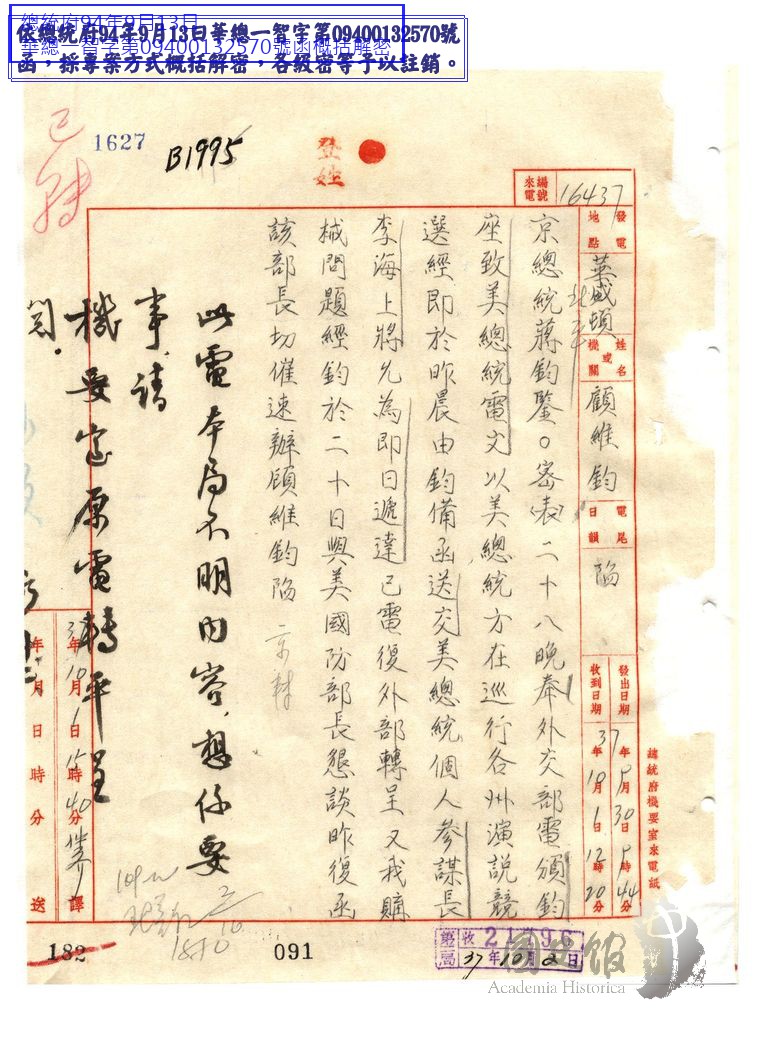 總統府94年9月13日
華總一智字第09400132570號函概括解密
依總統府94年9月13日華總一智字第09400132570號
函，採專案方式概括解密，各級密等予以註銷。
已
1627
B1995
登
姓
來電
編號
16437
發電
地點
華盛頓
姓名
或
機關
顧維鈞
電尾
日韻
陷
發出日期
37年9月30日9時44分
收到日期
37年10月1日12時20分
總統府機要室來電紙
北平
京總統蔣鈞鑒。密(表)二十八晚奉外交部電頒鈞
座致美總統電文以美總統方在巡行各州演說競
選經即於昨晨由鈞備函送交美總統個人參謀長
李海上將允為即日遞達已電復外部轉呈又我購
械問題經鈞於二十日與美國防部長懇談昨復函
該部長切催速辦顧維鈞陷
京轉
此電本局不明內容，想係要
事，請
機要室原電轉平呈
閱。
37年10月1日15時40分
譯
年 月 日 時 分
送
182
091
收
21096
37年10月2日
國史館
Academia Historica